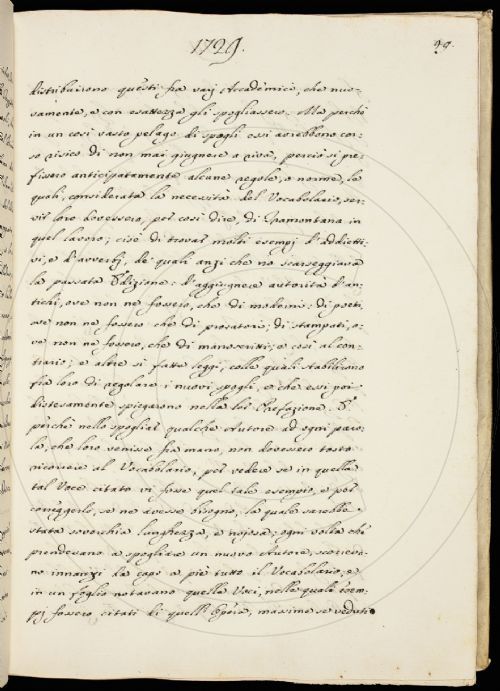 1729.
99.
distribuirono questi fra varj Accademici, che nuo-
vamente, e con esattezza gli spogliassero. Ma perchè
in un così vasto pelago di spogli essi avrebbono cor-
so risico di non mai giugnere a riva, perciò si pre-
fissero anticipatamente alcune regole, o norme, le
quali, considerata la necessità del Vocabolario, ser-
vir loro dovessero, per così dire, di Tramontana in
quel lavoro; cioè di trovar molti esempj d'addietti-
vi, e d'avverbj, de' quali anzi che no scarseggiava
la passata Edizione: d'aggiugnere autorità d'an-
tichi, ove non ne fossero, che di moderni: di poeti,
ove non ne fossero che di prosatori; di stampati, o-
ve non ne fossero, che di manoscritti; e così al con-
trario; e altre sì fatte leggi, colle quali stabilirono
fra loro di regolare i nuovi spogli, e che essi poi
distesamente spiegarono nella lor Prefazione. E
perchè nello spogliar qualche Autore ad ogni paro-
la, che loro venisse fra mano, non dovessero tosto
ricorrere al Vocabolario, per vedere se in quella
tal Voce citato vi fosse quel tale esempio, e per
correggerlo, se ne avesse bisogno, la quale sarebbe
stata soverchia lunghezza, e nojosa; ogni volta che
prendevano a spogliare un nuovo Autore, scorreva-
no innanzi da capo a piè tutto il Vocabolario, e
in un foglio notavano quelle Voci, nelle quali esem-
pj fossero citati di quell'Opera, massime se veduti